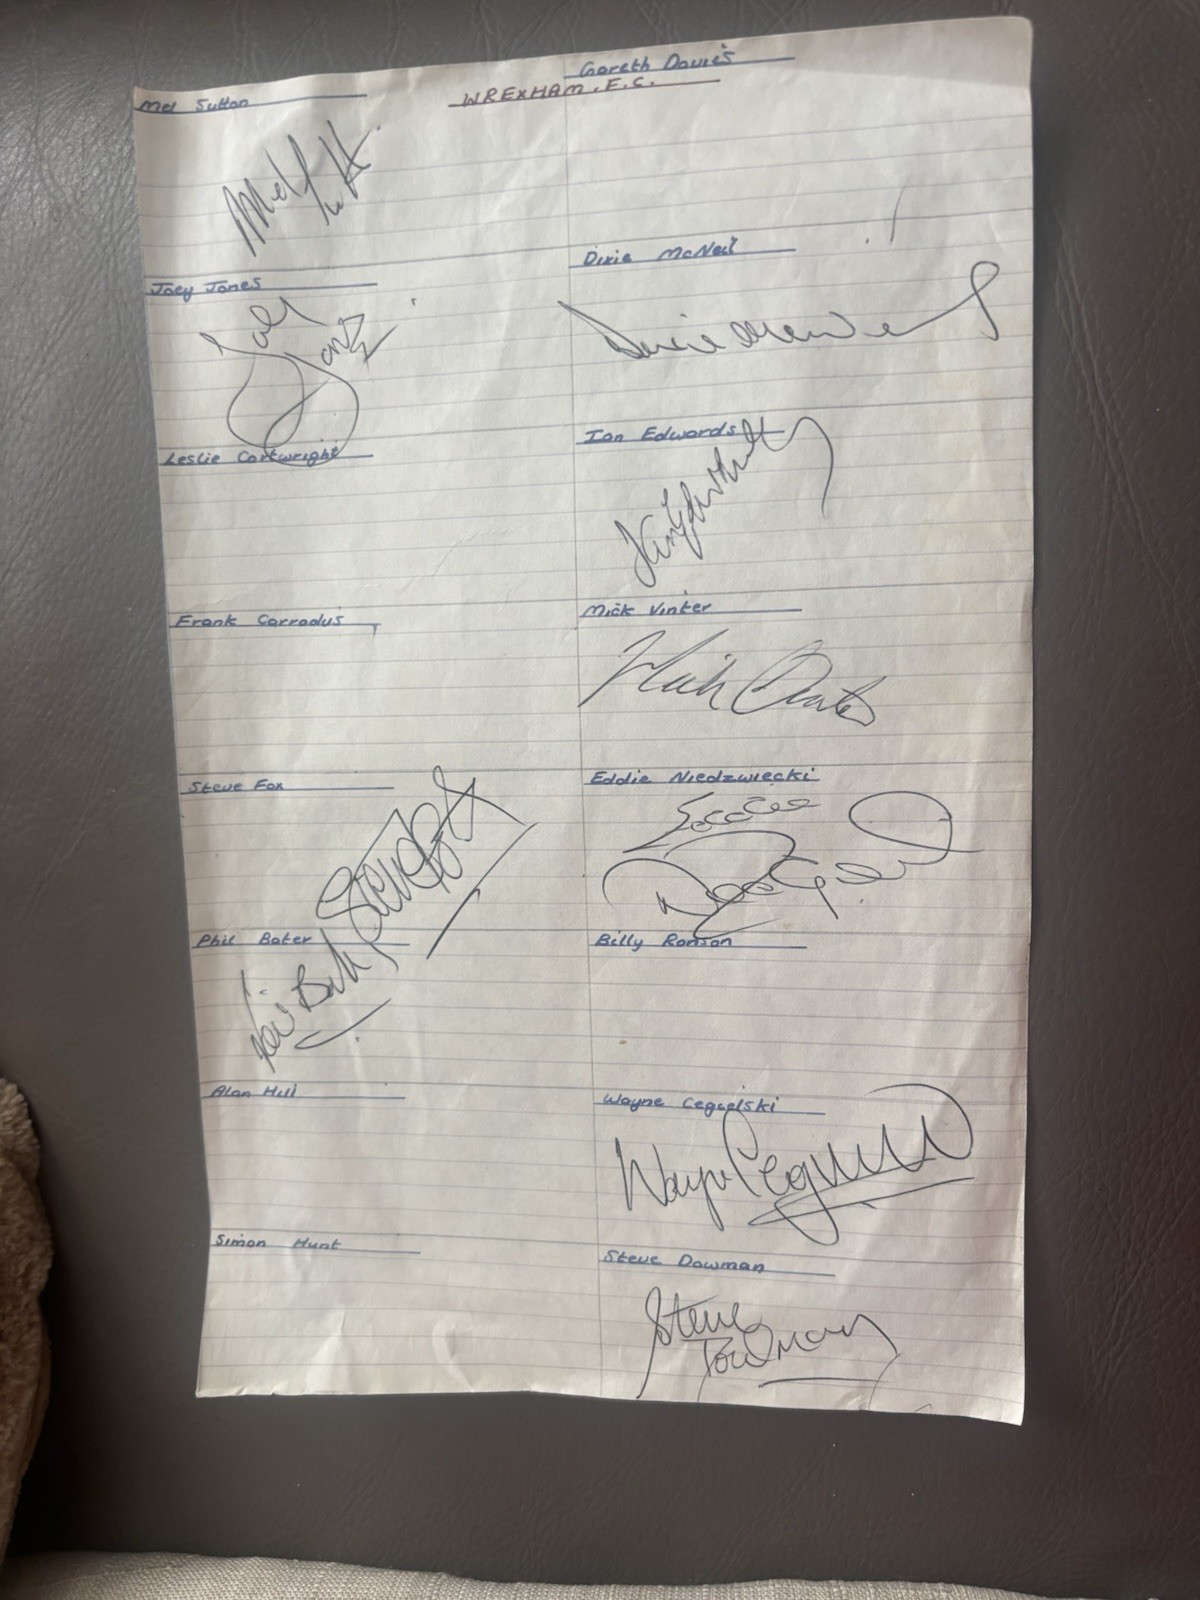 Gareth Davies
WREXHAM. F.C.
Mel Sutton
Mel Sutt
Dixie McNeil
Dixie McNeil
Joey Jones
Joey Jones
Ian Edwards
Ian Edwards
Leslie Cartwright
Mick Vinter
Mick Vinter
Frank Carrodus
Eddie Niedzwiecki
Eddie
Steve Fox
Steve Fox
Billy Ronson
Phil Baker
Wayne Cegielski
Wayne Cegielski
Alan Hill
Steve Dowman
Steve
Dowman
Simon Hunt